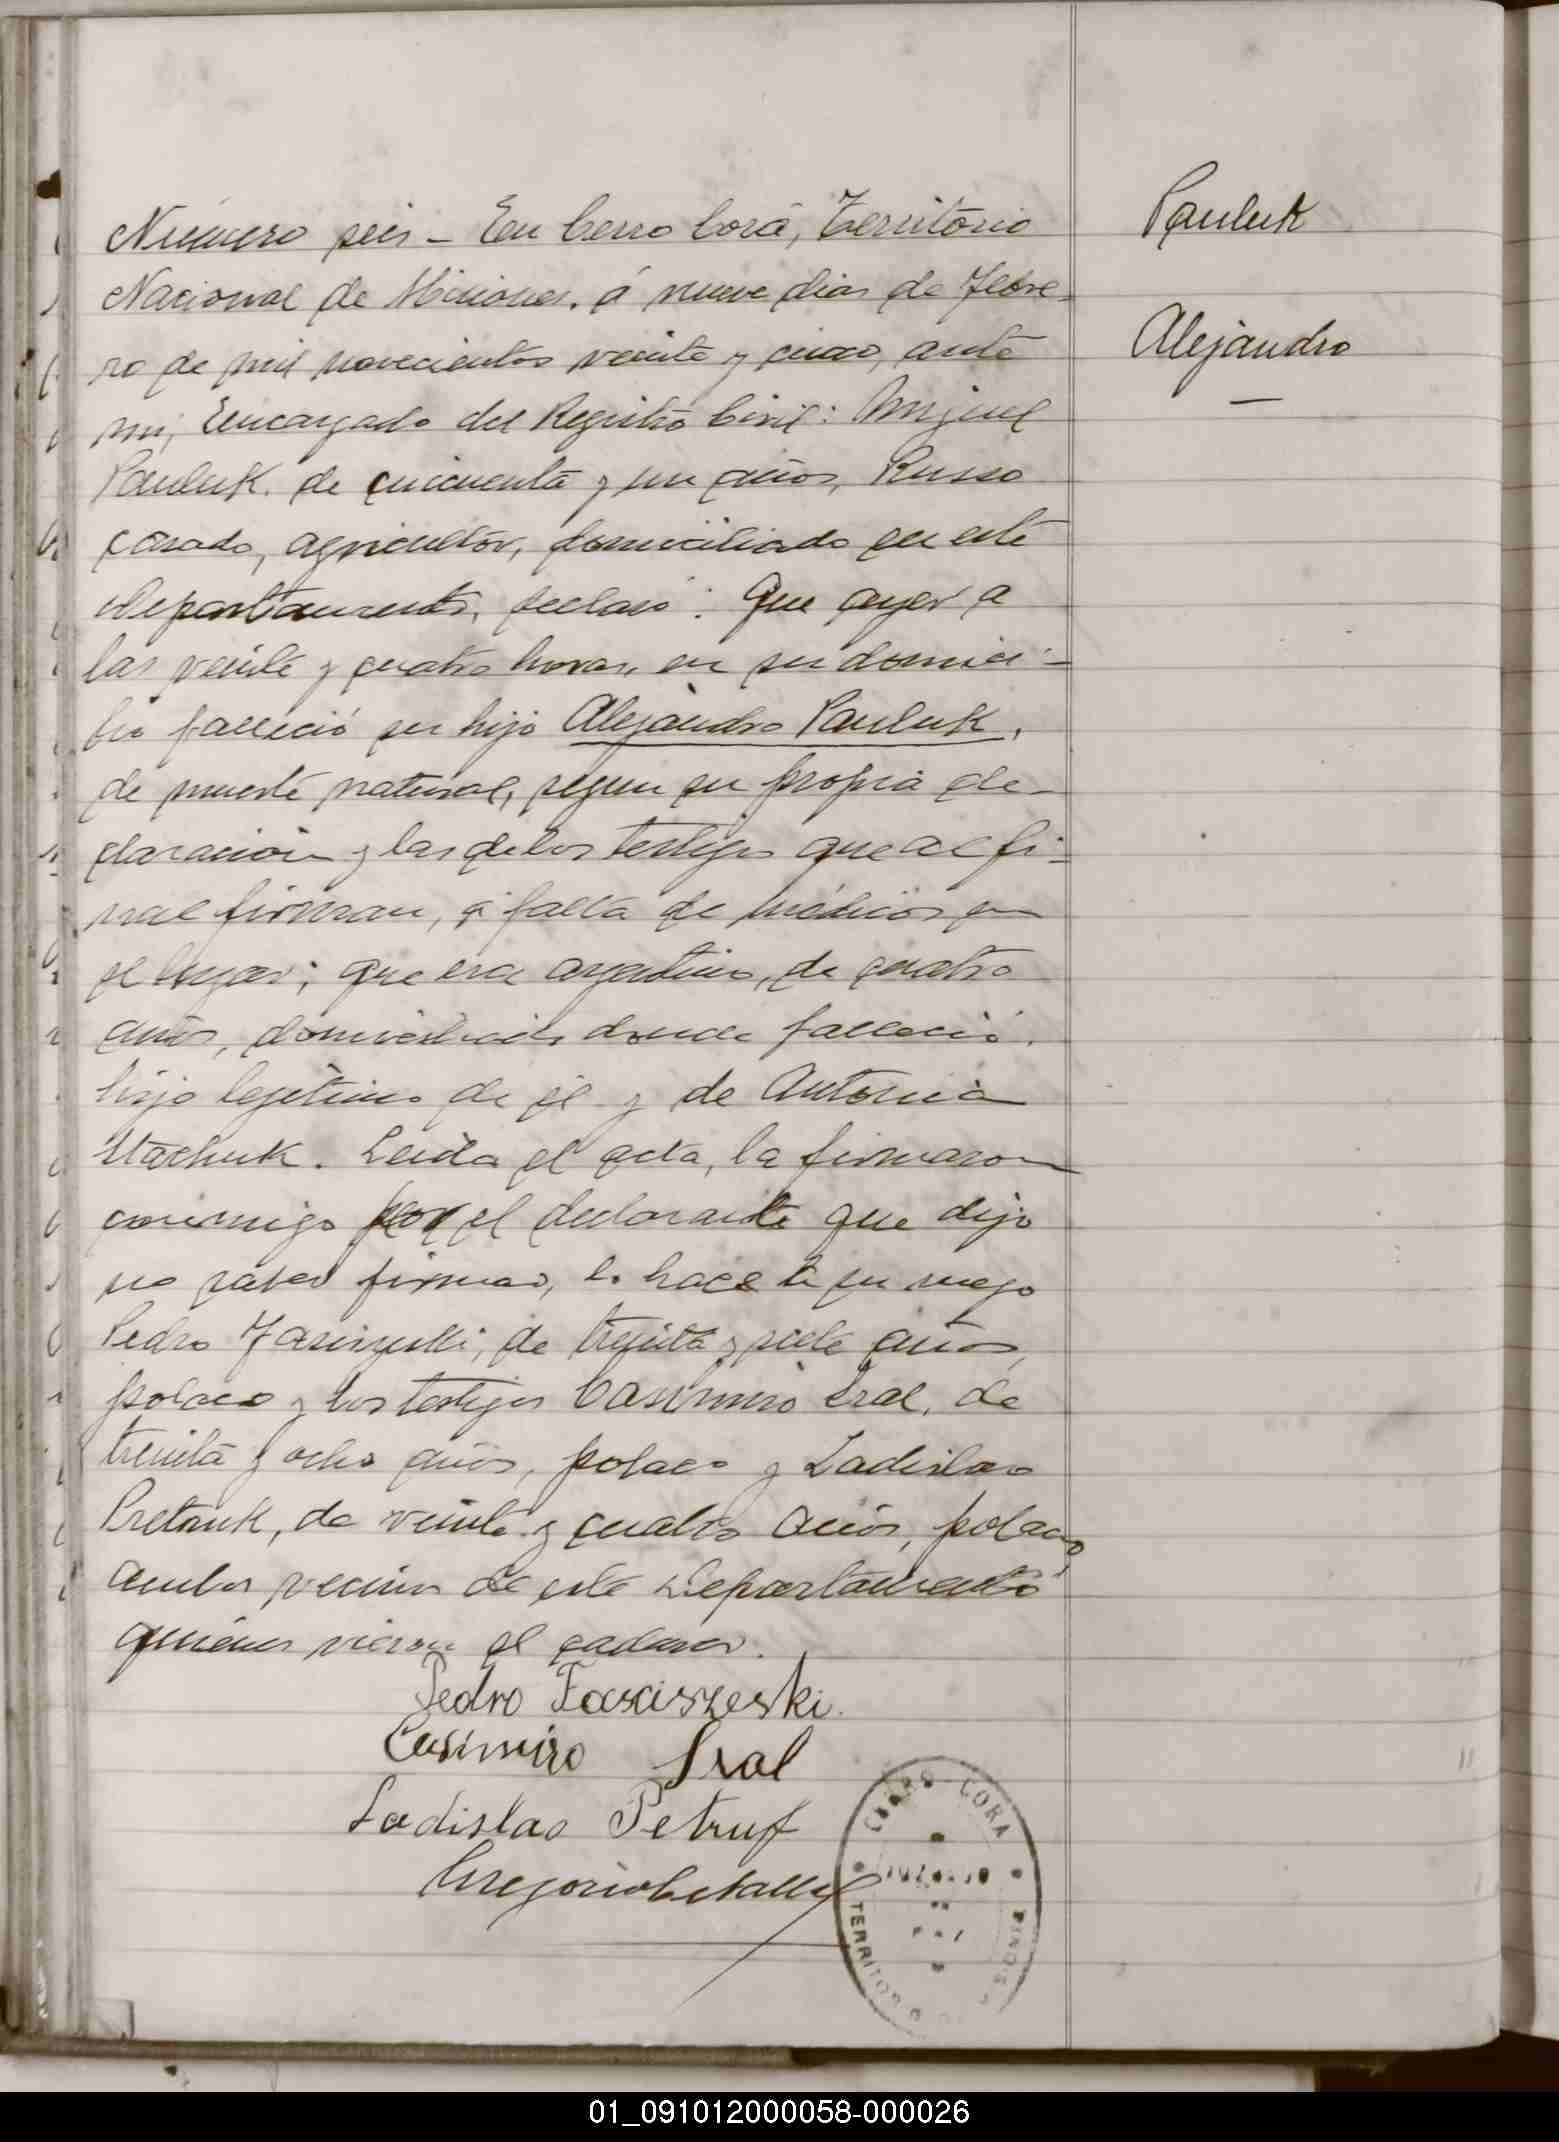 Número seis - En Cerro Corá, Territorio
Nacional de Misiones, á nueve dias de Febre-
ro de mil novecientos veinte y cinco, ante
mi, Encargado del Registro Civil: Miguel
Pauluk, de cincuenta y un años, Russo
casado, agricultor, domiciliado en este
Departamento, declaró: Que ayer a
las veinte y cuatro horas, en su domici-
lio falleció su hijo Alejandro Pauluk,
de muerte natural, segun su propia de-
claración y las de los testigos que al fi-
nal firman, á falta de médicos en
el lugar; que era argentino, de cuatro
años, domiciliado donde falleció,
hijo legítimo de él y de Antonia
Stachuk. Leida el acta, la firmaron
conmigo por el declarante que dijo
no saber firmar, lo hace á su ruego
Pedro, de treinta y siete años,
polaco y los testigos Casimiro Sral, de
treinta y ocho años, polaco y Ladislao
Pretruk, de veinte y cuatro años, polaco,
ambos vecinos de este Departamento
quienes vieron el cadaver.
Pedro Fasciszeski.
Casimiro Sral
Ladislao Petruf
Gregorio
Pauluk
Alejandro
CERRO CORA
TERRITORIO
01_091012000058-000026